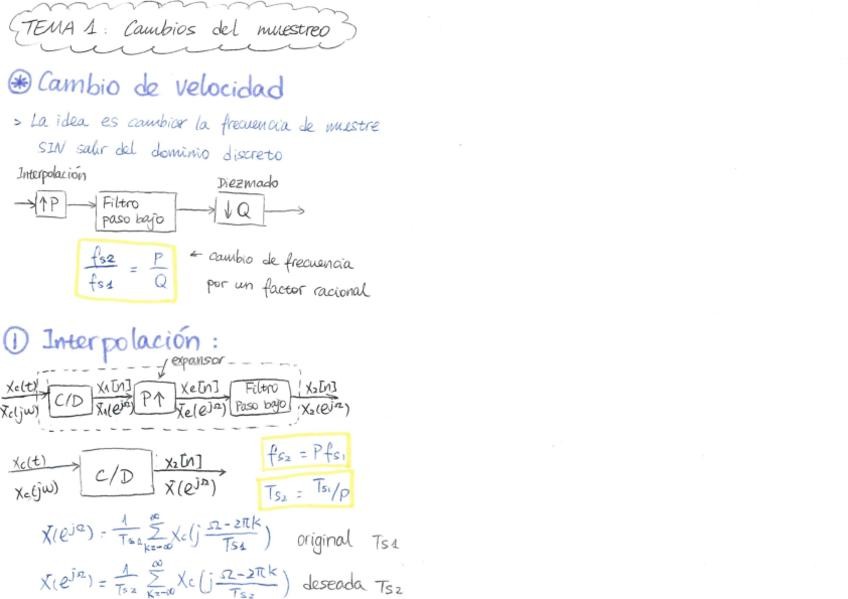 TEMA 1: Cambios del muestreo
⊛ Cambio de velocidad
> La idea es cambiar la frecuencia de muestre
SIN salir del dominio discreto
Interpolación Diezmado
↑P Filtro paso bajo ↓Q
fs2/fs1 = P/Q ← cambio de frecuencia
por un factor racional
① Interpolación:
expansor
Xc(t) C/D X1[n] P↑ Xe[n] Filtro Paso bajo X2[n]
Xc(jω) X1(e^jΩ) Xe(e^jΩ) X2(e^jΩ)
Xc(t) C/D X2[n] fs2 = P fs1
Xc(jω) X(e^jΩ) Ts2 = Ts1/P
X(e^jΩ) = 1/Ts1 ∑ k=-∞ ∞ Xc(j (Ω-2πk)/Ts1) original Ts1
X(e^jΩ) = 1/Ts2 ∑ k=-∞ ∞ Xc(j (Ω-2πk)/Ts2) deseada Ts2